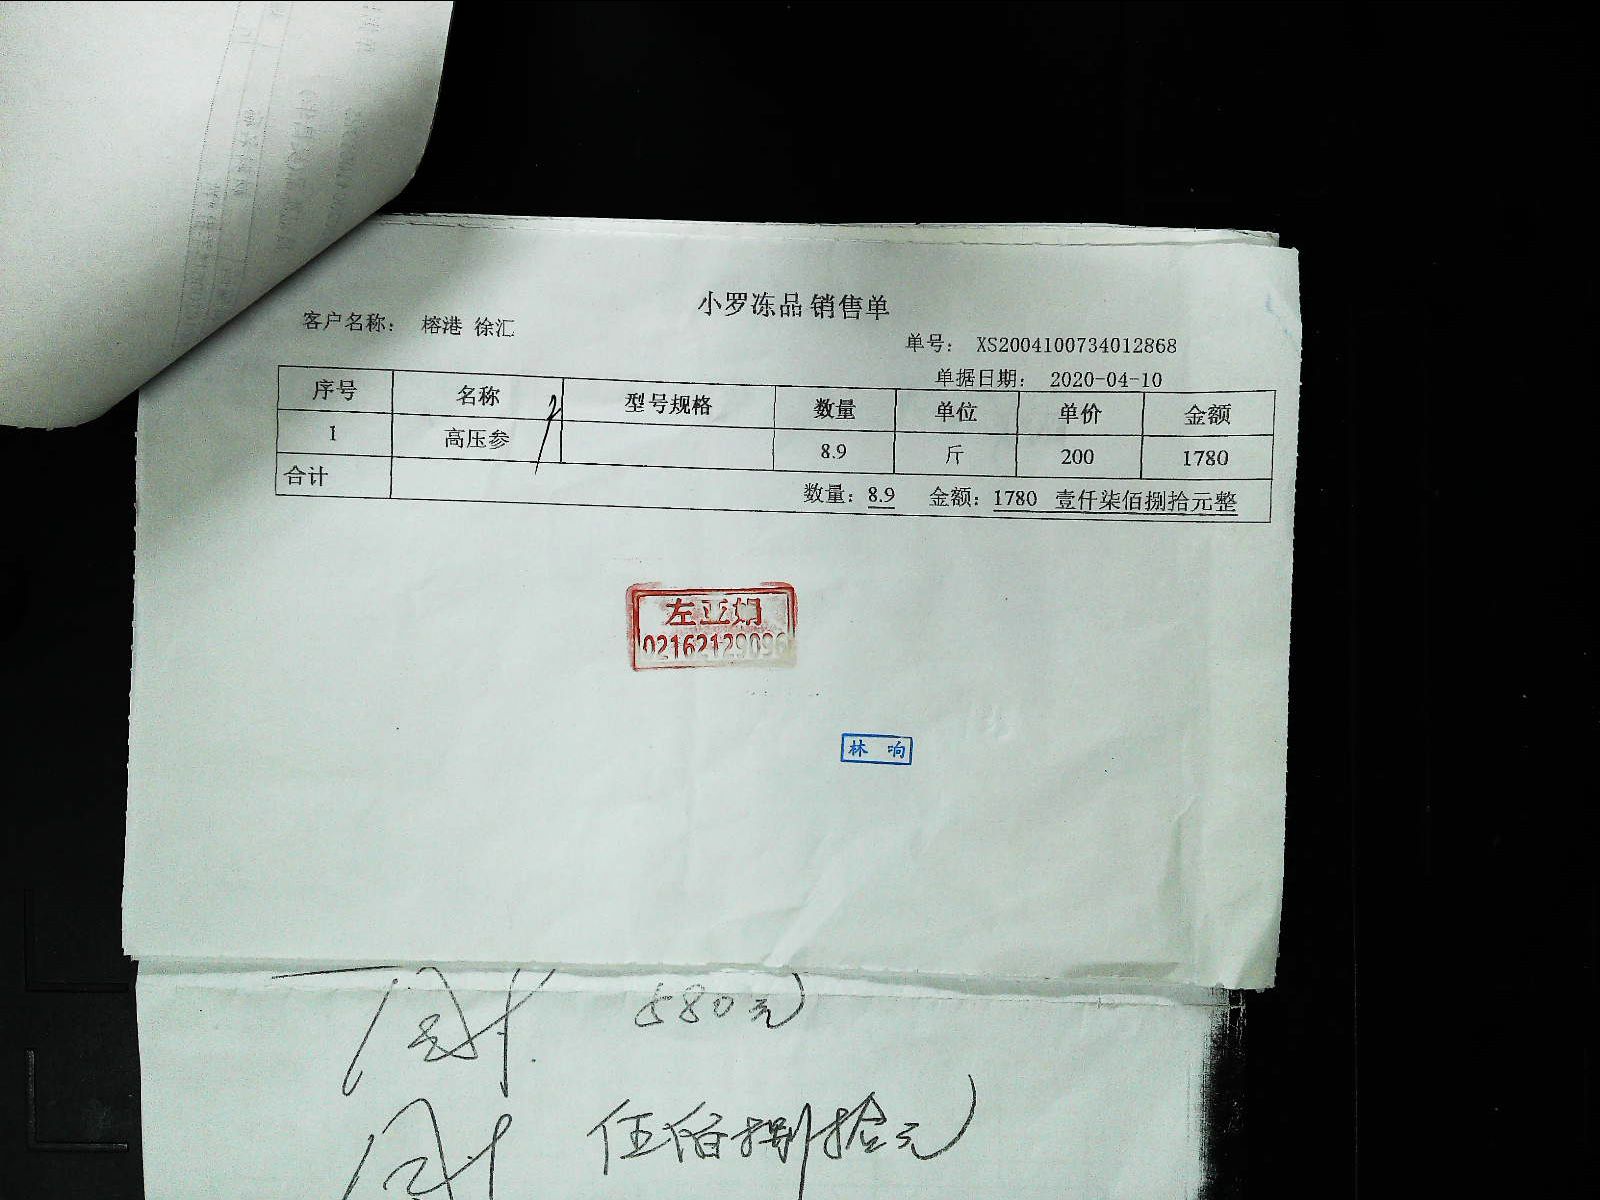 小罗冻品 销售单
客户名称： 榕港 徐汇
单号： XS2004100734012868
单据日期： 2020-04-10
序号 名称 型号规格 数量 单位 单价 金额
1 高压参 8.9 斤 200 1780
合计 数量：8.9 金额：1780 壹仟柒佰捌拾元整
左亚娟
0216212909
林 响
周 580元
周 伍佰捌拾元